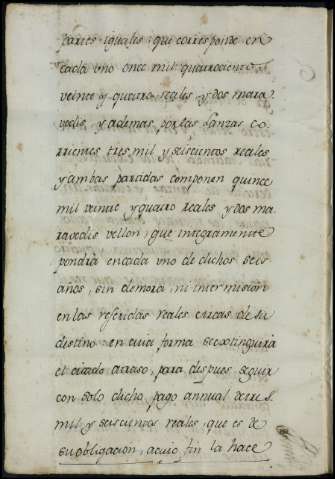 partes iguales; que corresponde en
cada uno once mil quatrocientos
veinte y quatro reales y dos mara
vedis, y ademas, por las Lanzas co
rrientes tres mil y seiscientos reales
y ambas partidas componen quince
mil veinte y quatro reales y dos ma
ravedis vellon; que integramente
pondrá en cada uno de dichos seis
años, sin demora, ni intermision
en las referidas reales arcas de su
destino en cuia forma se extinguirá
el citado atraso, para despues seguir
con solo dicho, pago annual de tres
mil y seiscientos reales, que es de
su obligacion, a cuio fin la hace